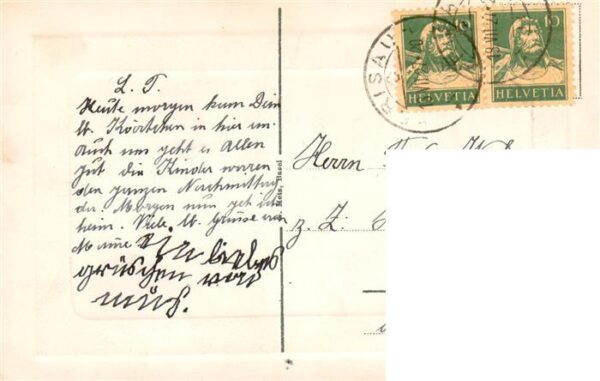 L. T.
Heute morgen kam Dein
lb. Kärtchen in hier an.
Auch uns geht es allen
gut die Kinder waren
den ganzen Nachmittag
da. Morgen nun geh ich
heim. Viele lb. Grüsse von
Mama
Ein liebes
grüschen von
müs.
Herrn
z. Z.
Metz, Basel
HERISAU
10
HELVETIA
10
HELVETIA